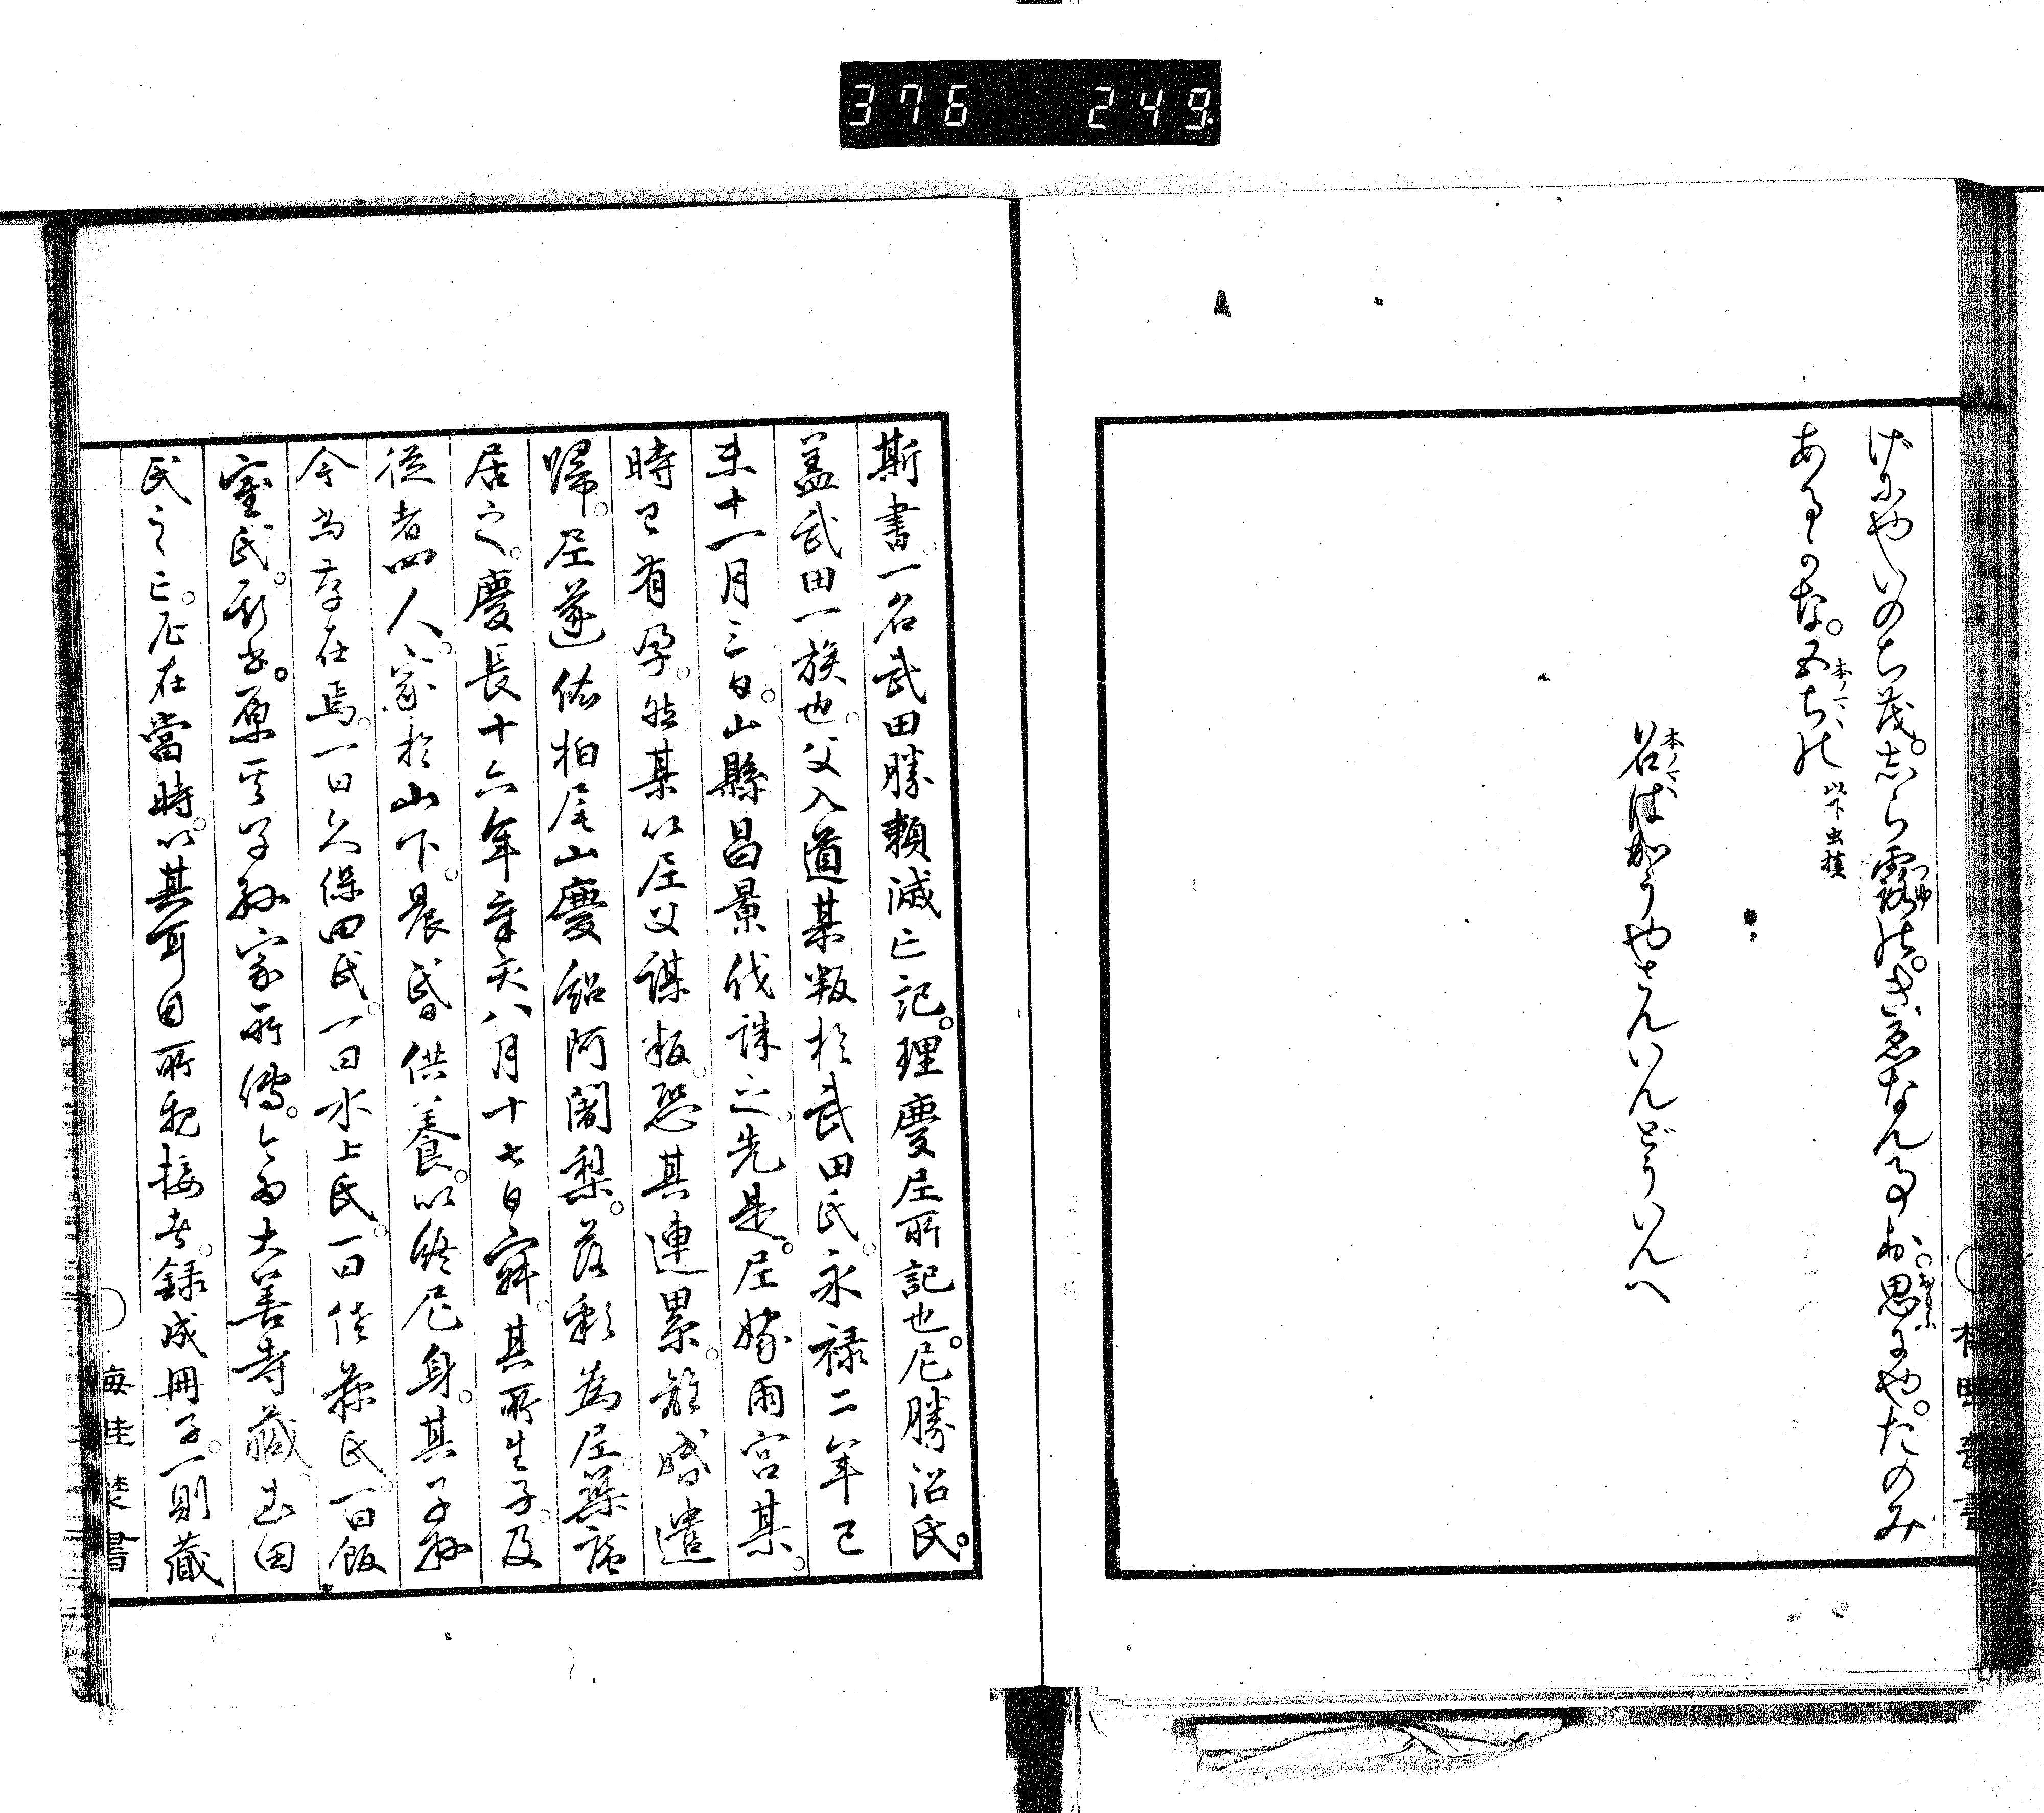 376 249
げにやいのち茂。志ら露の。きゑなん事お。思よや。たのみ
つゆ
あるかな。五ちの
本ノマヽ
以下虫損
谷はかうやさんいんどういんへ
本ノマヽ
斯書一名武田勝頼滅亡記。理慶尼所記也。尼勝沼氏。
蓋武田一族也。父入道某叛於武田氏。永禄二年己
未十一月三日。山縣昌景伐誅之。先是。尼嫁雨宮某。
時已有孕。然某以尼父謀叛。恐其連累。離婚遣
歸。尼遂依柏尾山慶紹阿闍梨。落彩為尼。築菴
居之。慶長十六年辛亥八月十七日寂。其所生子。及
従者四人。家於山下。晨昏供養。以終尼身。其子孫
今尚存在焉。一曰久保田氏。一曰水上氏。一曰佳藤氏。一曰飯
室氏。斯書。原其子孫家所傳。今為大善寺藏。武田
氏之亡。尼在當時。以其耳目所親接者。録成冊子。一則藏